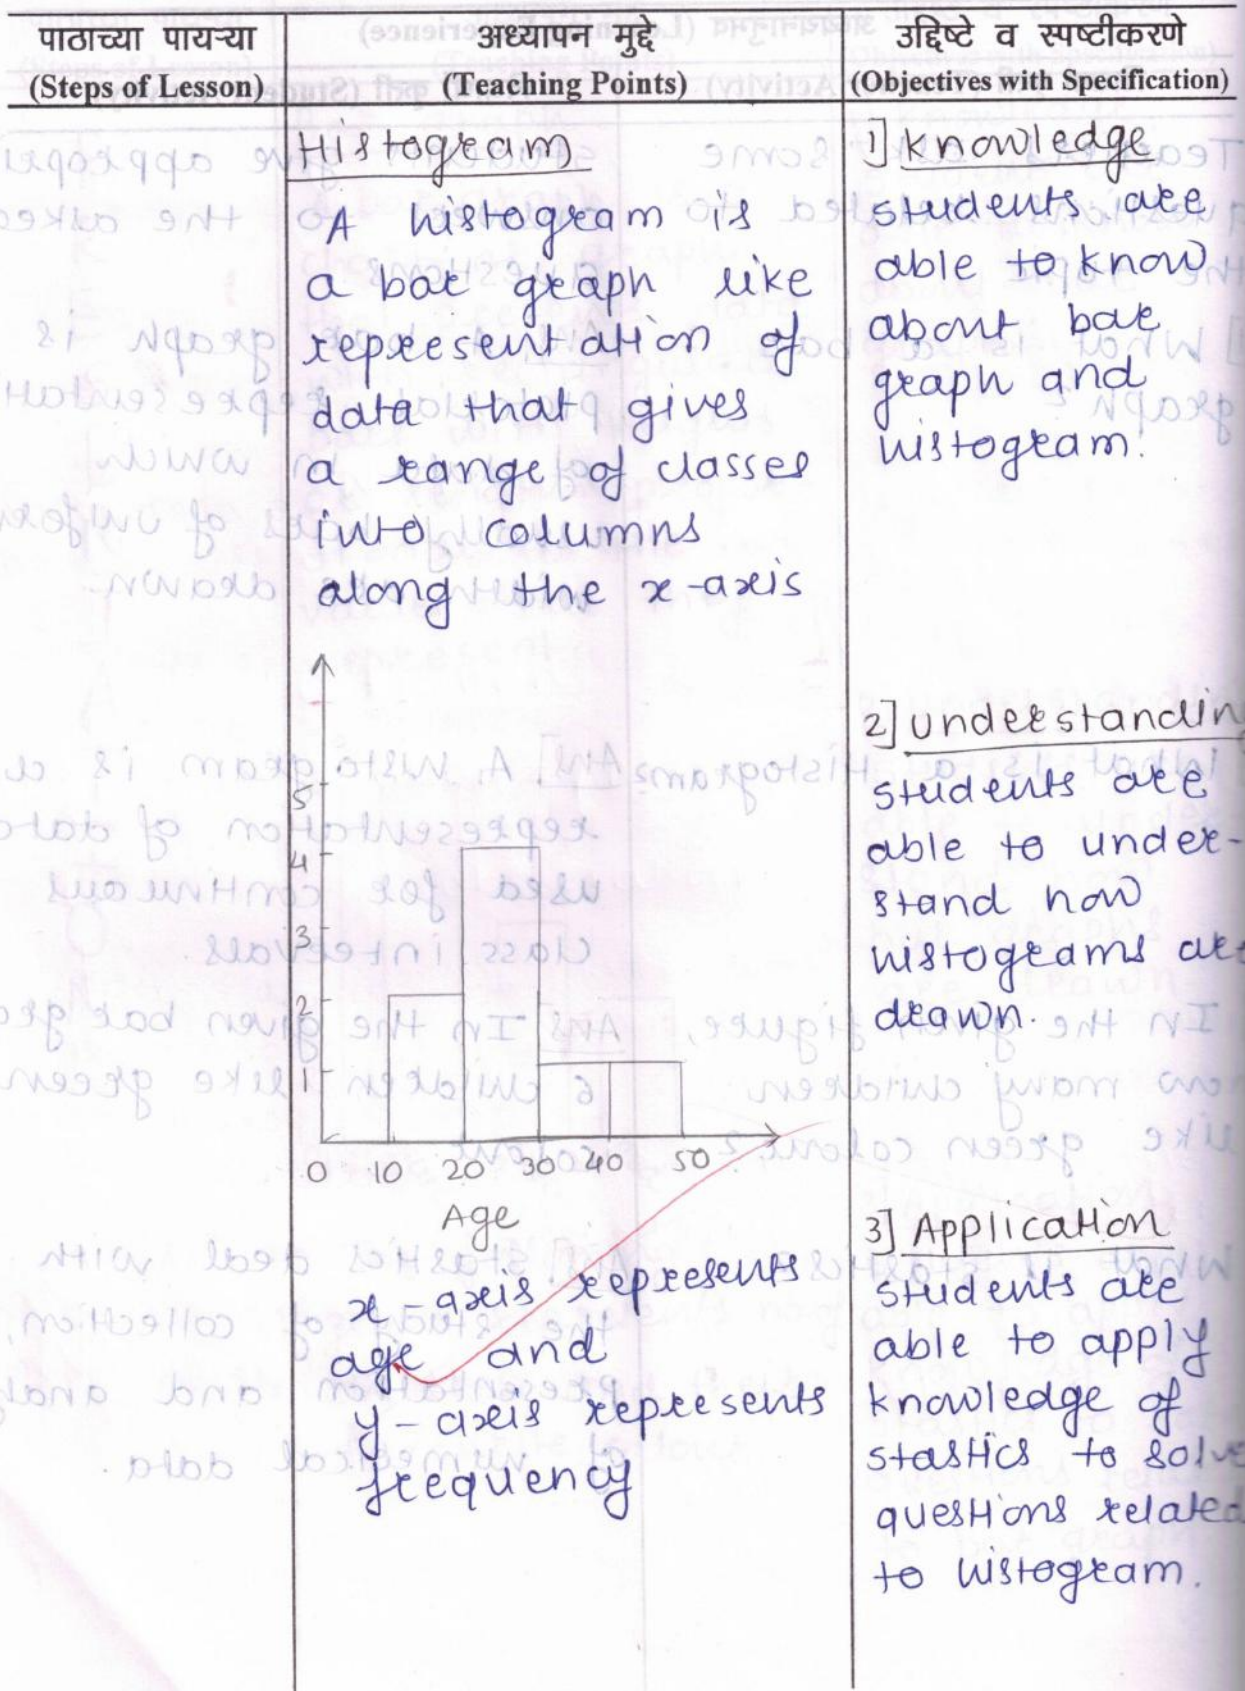 पाठाच्या पायऱ्या
(Steps of Lesson)
अध्यापन मुद्दे
(Teaching Points)
उद्दिष्टे व स्पष्टीकरणे
(Objectives with Specification)
Histogram
A histogram is
a bar graph like
representation of
data that gives
a range of classes
into columns
along the x-axis
5
4
3
2
1
0 10 20 30 40 50
Age
x-axis represents
age and
y-axis represents
frequency
1] Knowledge
students are
able to know
about bar
graph and
histogram.
2] Understanding
students are
able to under-
stand how
histograms are
drawn.
3] Application
students are
able to apply
knowledge of
stastics to solve
questions related
to histogram.